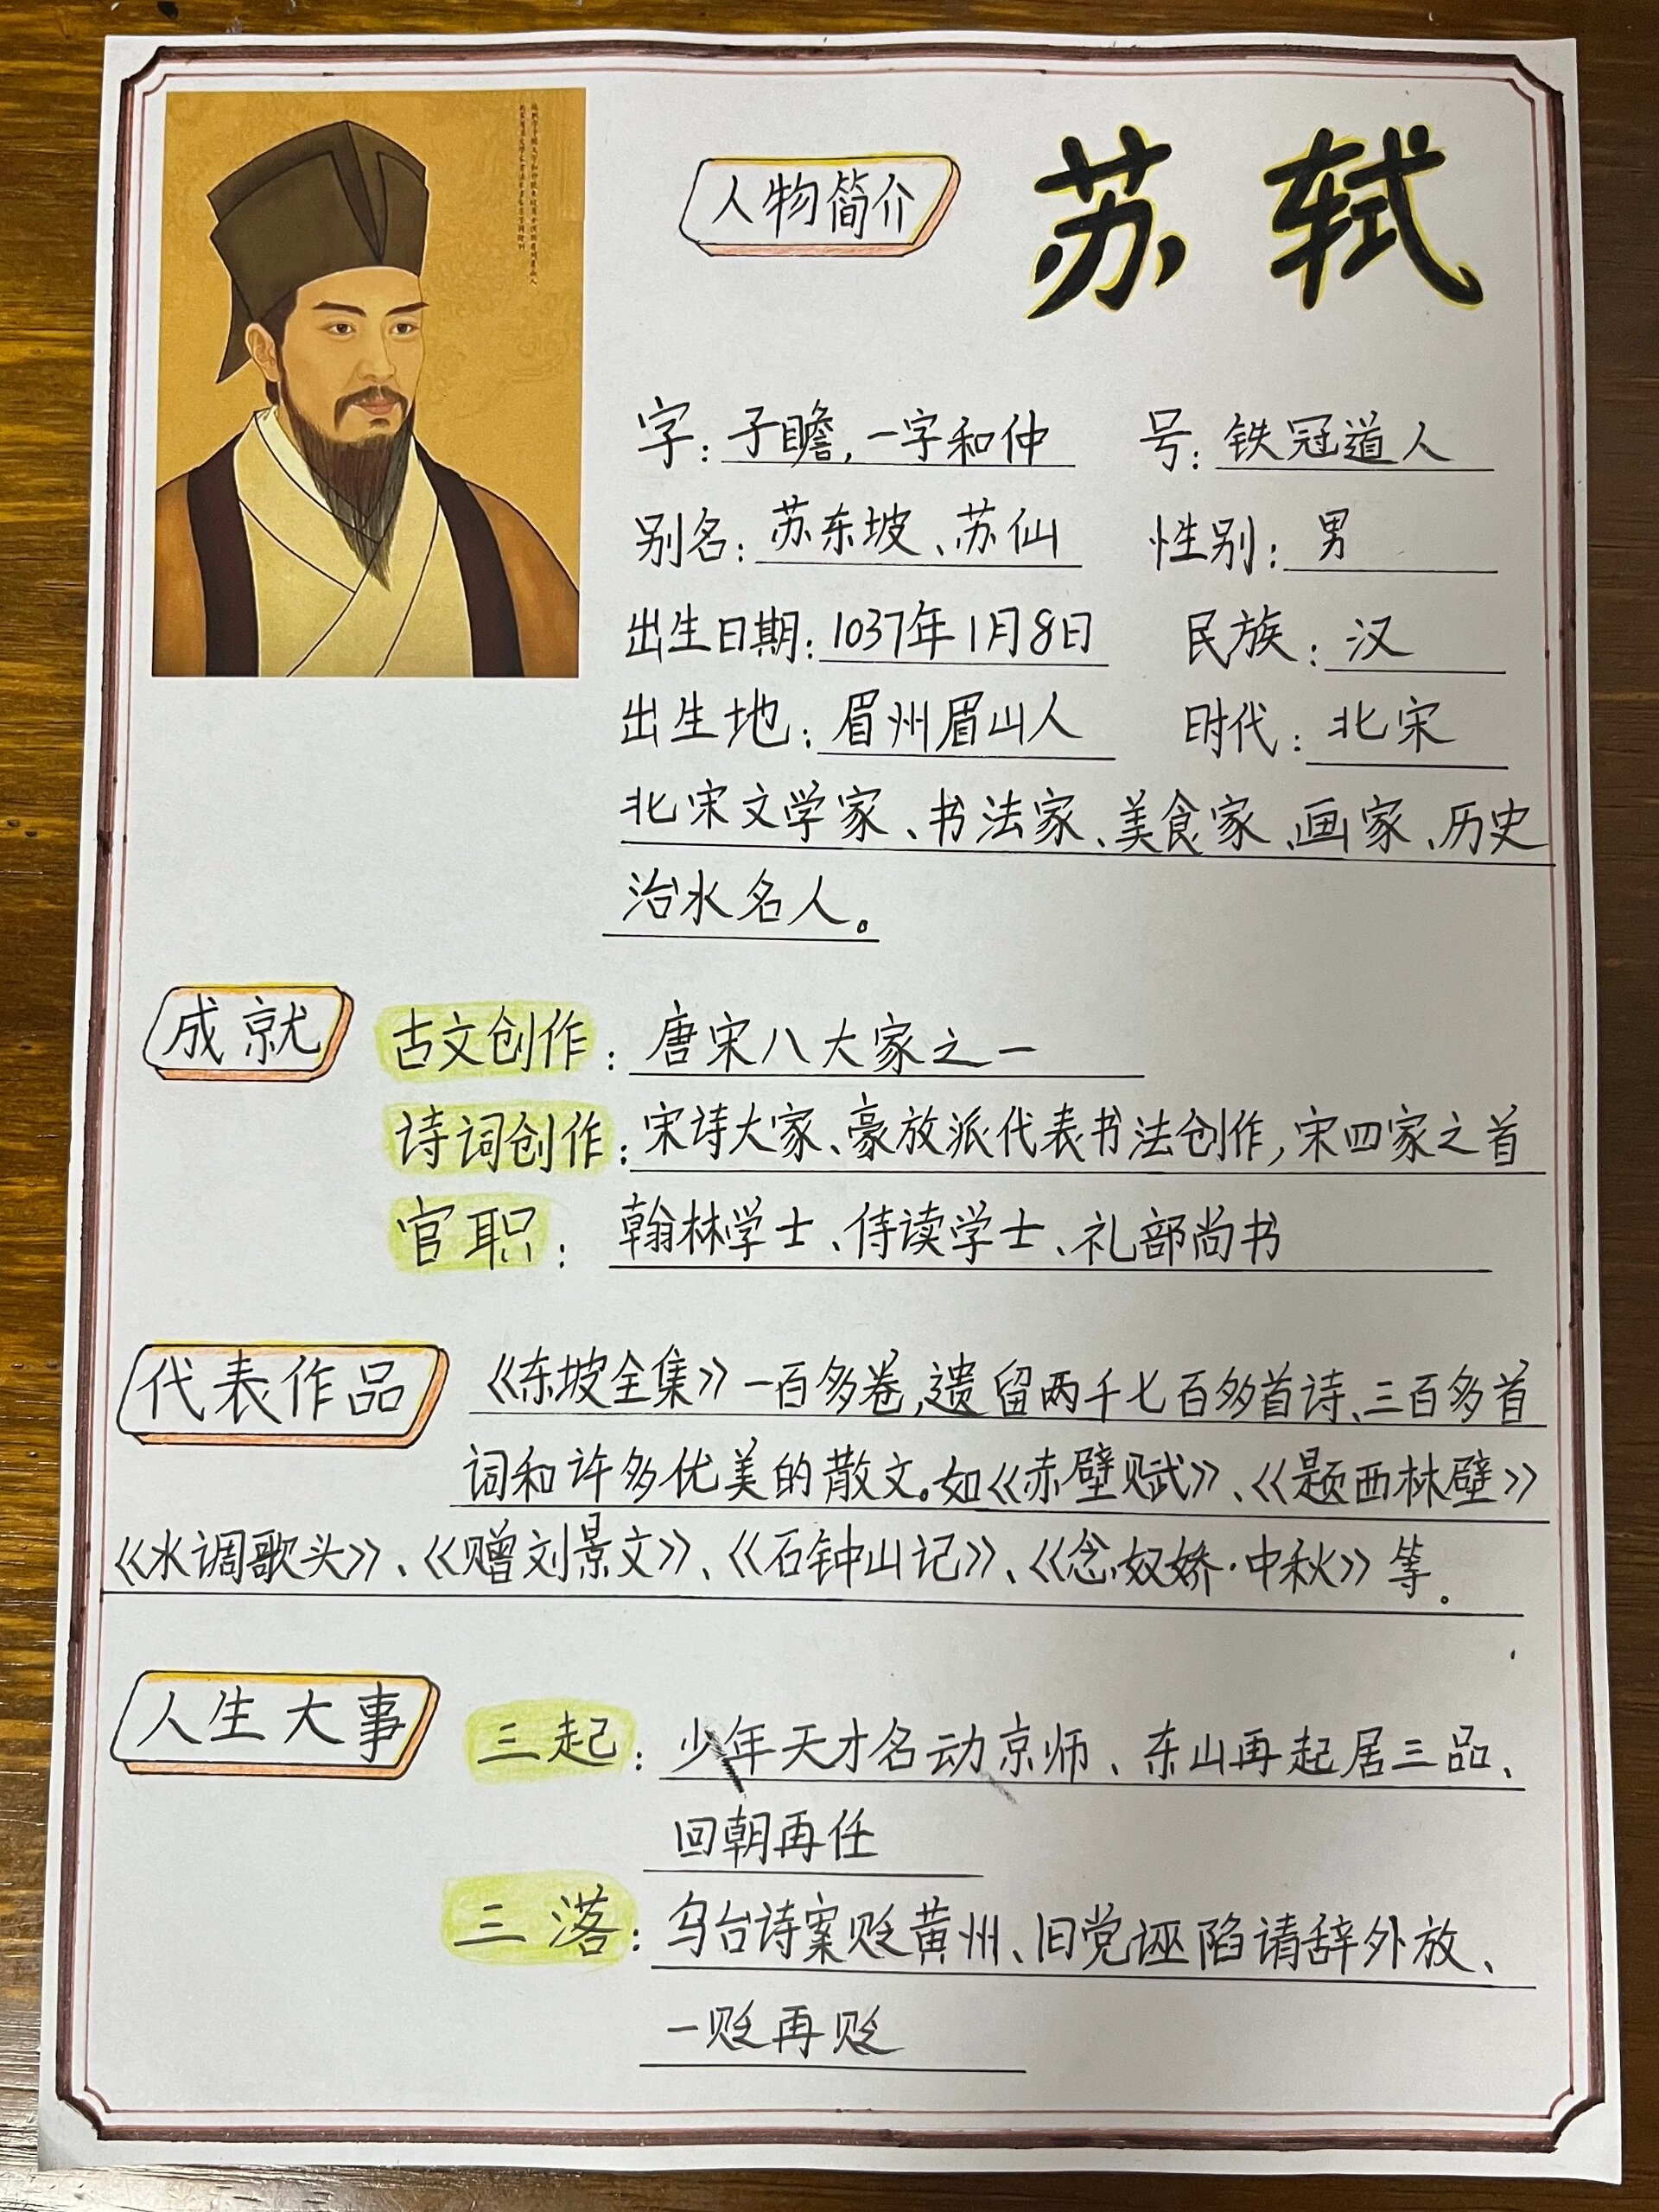 人物简介
苏轼
字：子瞻，一字和仲 号：铁冠道人
别名：苏东坡、苏仙 性别：男
出生日期：1037年1月8日 民族：汉
出生地：眉州眉山人 时代：北宋
北宋文学家、书法家、美食家、画家、历史
治水名人。
成就
古文创作：唐宋八大家之一
诗词创作：宋诗大家、豪放派代表书法创作，宋四家之首
官职：翰林学士、侍读学士、礼部尚书
代表作品
《东坡全集》一百多卷，遗留两千七百多首诗、三百多首
词和许多优美的散文。如《赤壁赋》、《题西林壁》
《水调歌头》、《赠刘景文》、《石钟山记》、《念奴娇·中秋》等。
人生大事
三起：少年天才名动京师、东山再起居三品、
回朝再任
三落：乌台诗案贬黄州、旧党诬陷请辞外放、
一贬再贬